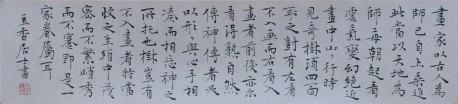 畫家以古人為
師已自上乘進
此當以天地為
師每朝起看
雲氣變幻絕近
畫中山行時
見奇樹須四面
取之樹有左看
不入畫而右看入
畫者前後亦尔
看得熟自然
傳神傳神者必
以形形與心手相
湊而相忘神之
所托也樹豈有
不入畫者特當
收之生綃中茂
密而不繁峭秀
而不蹇即是一
家眷屬耳
香居士書